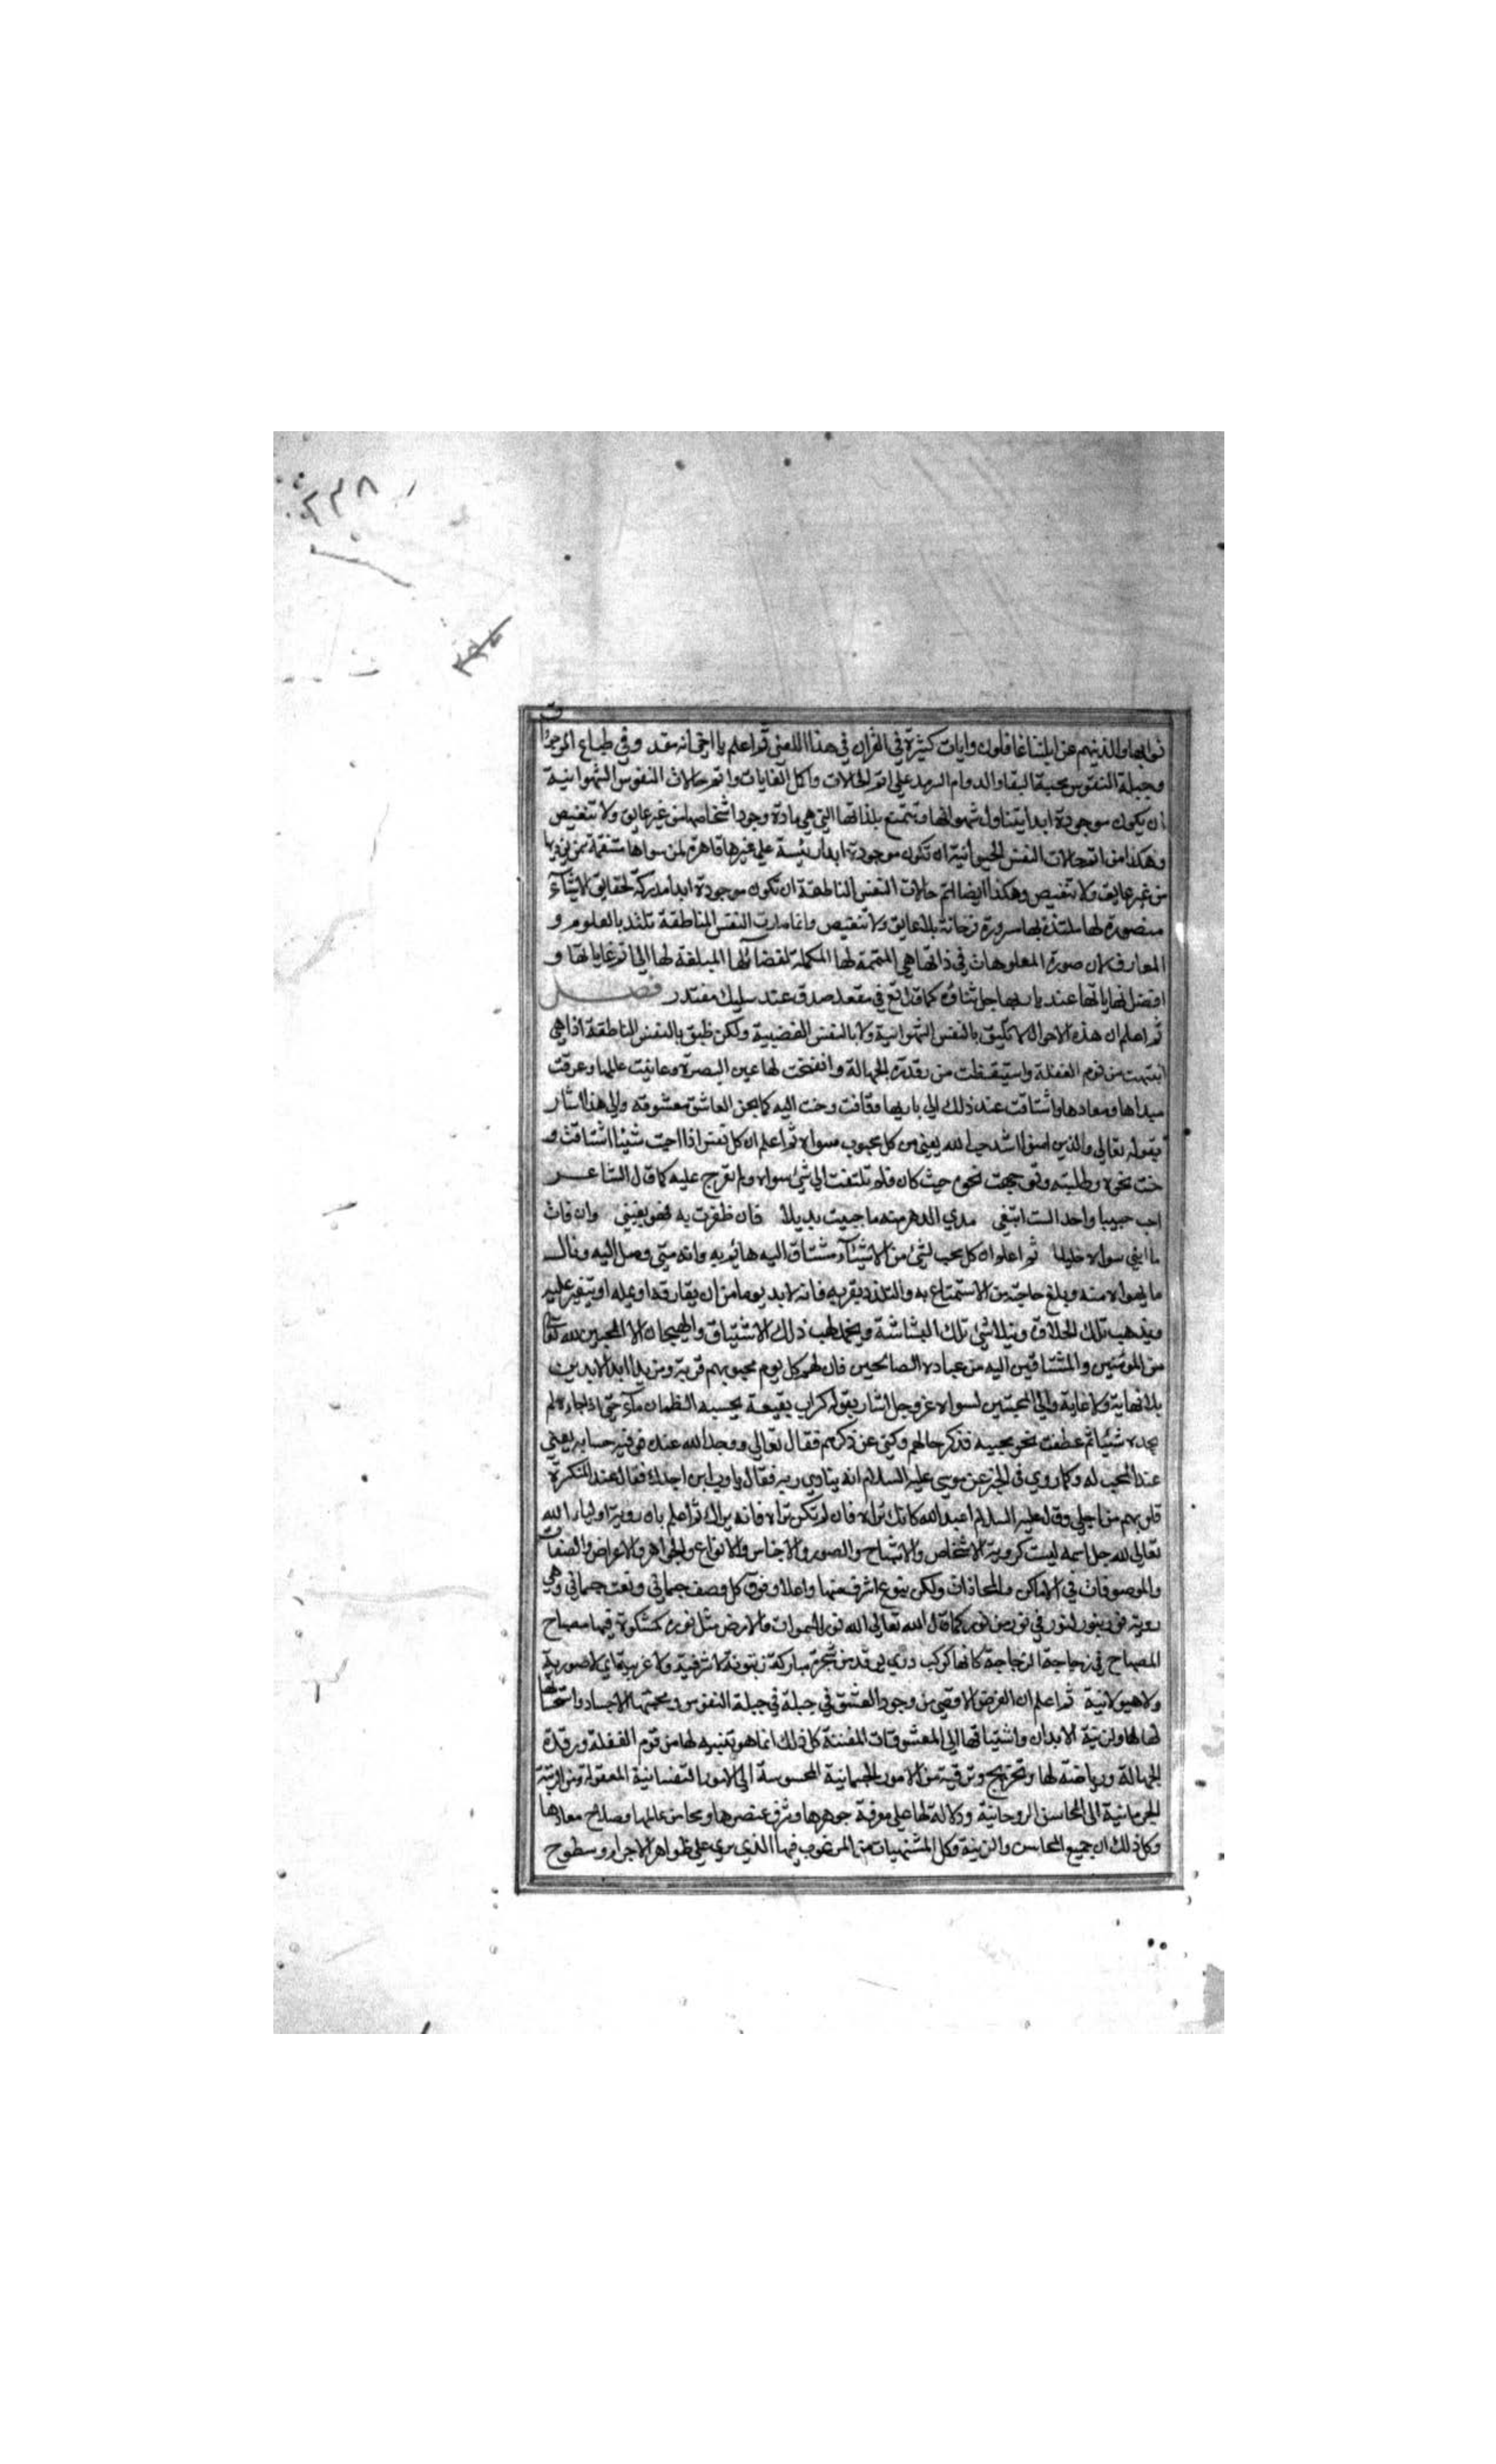 ٢٣٨
ثوابها والذينهم عن اياتنا غافلون وايات كثيرة في القران في هذا المعنى ثم اعلم يا اخي انه مقد وفي طباع الموجودات
وجبلة النفوس محبة البقا والدوام السرمد على اتم الحالات واكمل الغايات واتم حالات النفوس الشهوانية
ان يكون موجودة ابدا يتناول شهواتها وتتمتع بلذاتها التي هي مادة وجود اشخاصها من غير عايق ولا تنغيص
وهكذا من اتم حالات النفس الحيوانية ان تكون موجودة ابدا رئيسة على غيرها قاهرة لمن سواها منتقمة ممن يوذيها
من غير عايق ولا تنغيص وهكذا ايضا اتم حالات النفس الناطقة ان تكون موجودة ابدا مدركة لحقايق الاشيآء
متصورة لها ملتذة بها مسرورة فرحانة بلا عايق ولا تنغيص وانما صارت النفس الناطقة تلتذ بالعلوم و
المعارف لان صورة المعلومات في ذاتها هي المتممة لها المكملة لفضائلها المبلغة لها الى اتم غاياتها و
افضل نهاياتها عند باريها جل ثناؤه كما قال تع في مقعد صدق عند مليك مقتدر فصل
ثم اعلم ان هذه الاحوال لا تليق بالنفس الشهوانية ولا بالنفس الغضبية ولكن تليق بالنفس الناطقة اذا هي
انتبهت من نوم الغفلة واستيقظت من رقدة الجهالة وانفتحت لها عين البصيرة وعاينت عالمها وعرفت
مبداها ومعادها واشتاقت عند ذلك الي باريها وتاقت وحنت اليه كما يحن العاشق معشوقه والى هذا اشار
بقوله تعالى والذين امنوا اشد حبا لله يعني من كل محبوب سواه ثم اعلم ان كل نفس اذا احبت شيئا اشتاقت و
حنت نحوه وطلبته وتوجهت نحوه حيث كان فلم تلتفت الي شي سواه ولم تعرج عليه كما قال الشاعر
احب حبيبا واحدا لست ابتغي مدي الدهر منه ما حييت بديلا فان ظفرت به فهو بغيتي وان فات
ما ابغي سواه خليلا ثم اعلموا ان كل محب لشي من الاشيآء مشتاق اليه هائم به وانه متي وصل اليه ونال
ما يهواه منه وبلغ حاجته من الاستمتاع به والتلذذ بقربه فانه لابد يوما من ان يفارقه او يمله او يتغير عليه
ويذهب تلك الحلاوة ويتلاشي تلك البشاشة ويخمد لهب ذلك الاشتياق والهيجان الا المحبين لله تعالى
من المؤمنين والمشتاقين اليه من عباده الصالحين فان لهم كل يوم من محبوبهم قربة ومزيدا ابد الابدين
بلا نهاية ولا غاية والي المحبين لسواه عز وجل اشار بقوله كسراب بقيعة يحسبه الظمان مآء حتي اذا جاءه لم
يجده شيئا ثم عطفت نحو محبيه فذكر حالهم وكني عن ذكرهم فقال تعالى ووجد الله عنده فوفيه حسابه يعني
عند المحب له وكما روي في الخبر عن موسى عليه السلام انه ينادي ربه فقال يا رب اين اجدك فقال عند المنكسرة
قلوبهم من اجلي وقال عليه السلام اعبد الله كانك تراه فان لم تكن تراه فانه يراك ثم اعلم بان روية اولياء الله
تعالى لله جل اسمه ليست كروية الاشخاص والاشباح والصور والاجناس والانواع والجواهر والاعراض والصفات
والموصوفات في الاماكن والمحاذات ولكن بنوع اشرف منها واعلا وفوق كل وصف جسماني ونعت جسماني وهي
روية نور بنور لنور في نور من نور كما قال الله تعالى الله نور السموات والارض مثل نوره كمشكوة فيها مصباح
المصباح في زجاجة الزجاجة كانها كوكب دري يوقد من شجرة مباركة زيتونة لا شرقية ولا غربية اي لا صورية
ولا هيولانية ثم اعلم ان الغرض الاقصى من وجود العشق في جبلة في جبلة النفوس ومحبتها الاجساد واستحسانها
لها ولزينة الابدان واشتياقها الى المعشوقات المفننة كل ذلك انما هو تنبيه لها من نوم الغفلة ورقدة
الجهالة ورياضة لها وتخريج وترقية من الامور الجسمانية المحسوسة الى الامور النفسانية المعقولة ومن الرتبة
الجرمانية الى المحاسن الروحانية ودلالة لها على معرفة جوهرها وشرف عنصرها ومحاسن عالمها وصلاح معادها
وكل ذلك ان جميع المحاسن والزينة وكل المشتهيات من المرغوب فيها الذي يرى على ظواهر الاجرام وسطوح